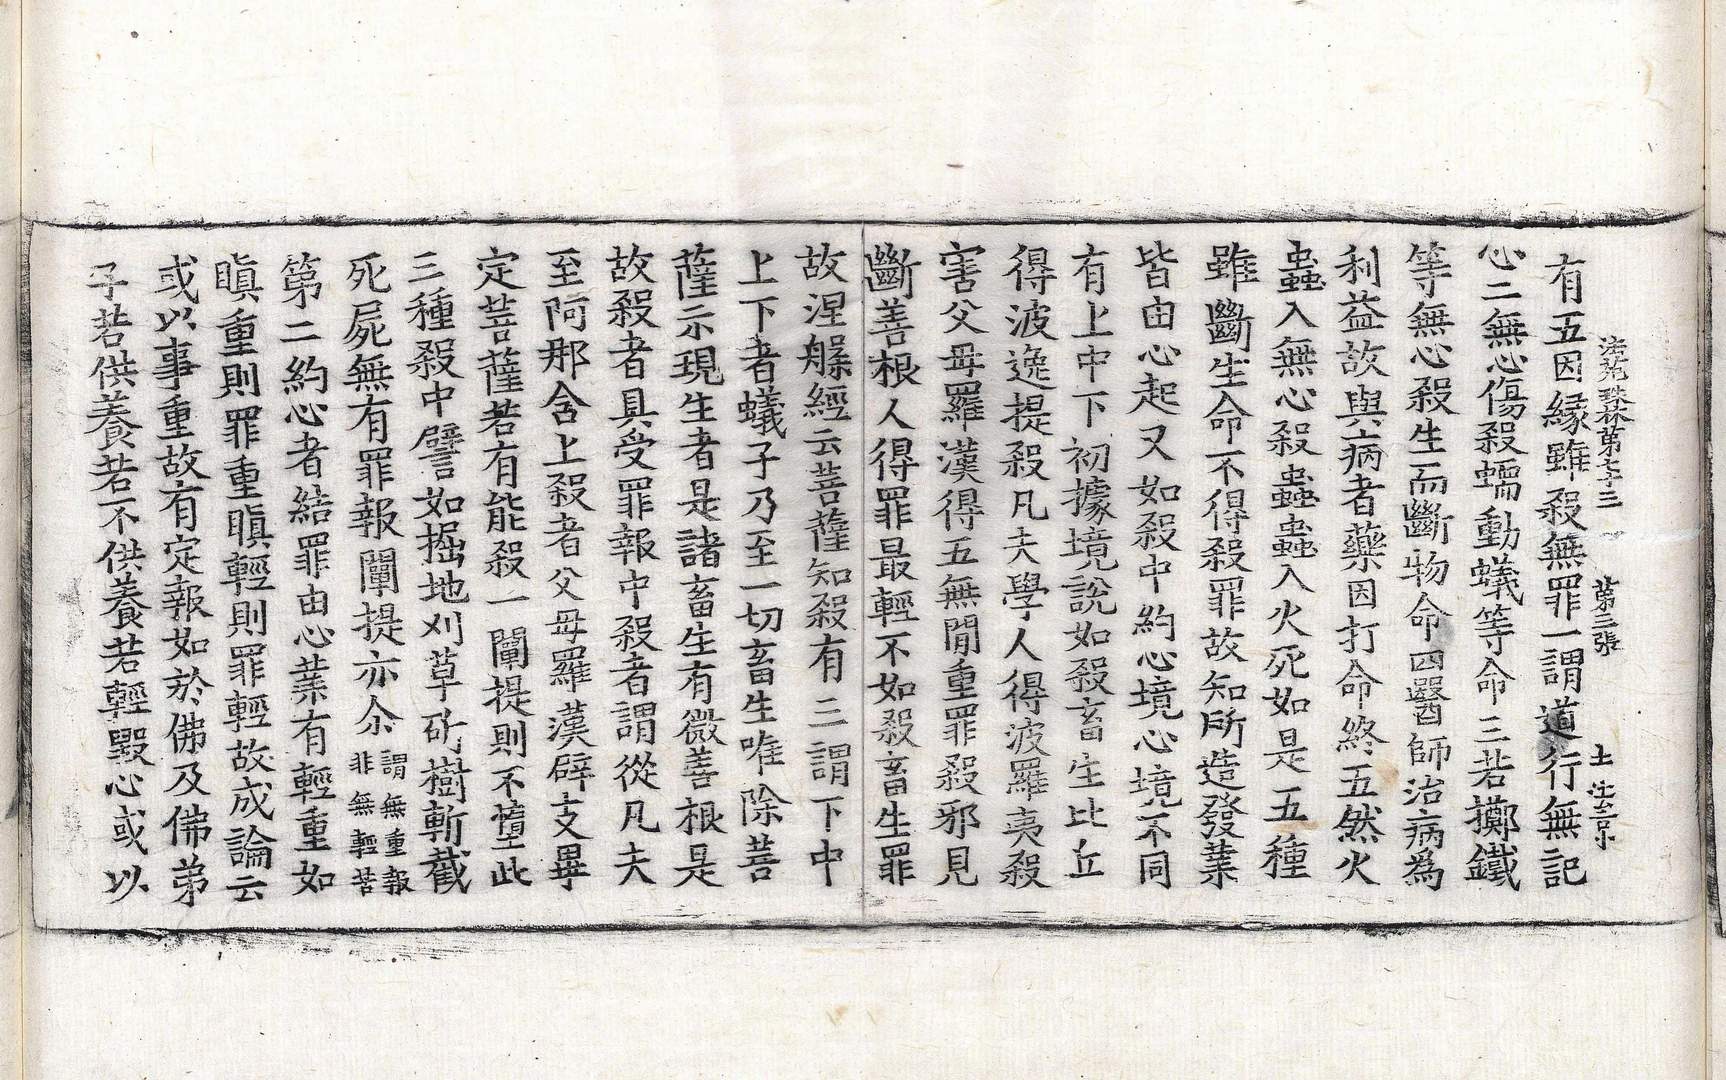 法苑珠林第七十三　第三張　土
有五因緣雖殺無罪一謂道行無記
心二無心傷殺蠕動蟻等命三若擲鐵
等無心殺生而斷物命四醫師治病為
利益故與病者藥因打命終五然火
蟲入無心殺蟲蟲入火死如是五種
雖斷生命不得殺罪故知所造發業
皆由心起又如殺中約心境心境不同
有上中下初據境說如殺畜生比丘
得波逸提殺凡夫學人得波羅夷殺
害父母羅漢得五無閒重罪殺邪見
斷善根人得罪最輕不如殺畜生罪
故涅槃經云菩薩知殺有三謂下中
上下者蟻子乃至一切畜生唯除菩
薩示現生者是諸畜生有微善根是
故殺者具受罪報中殺者謂從凡夫
至阿那含上殺者父母羅漢辟支畢
定菩薩若有能殺一闡提則不墮此
三種殺中譬如掘地刈草斫樹斬截
死屍無有罪報闡提亦尒謂無重報非無輕苦
第二約心者結罪由心業有輕重如
瞋重則罪重瞋輕則罪輕故成論云
或以事重故有定報如於佛及佛弟
子若供養若不供養若輕毀心或以